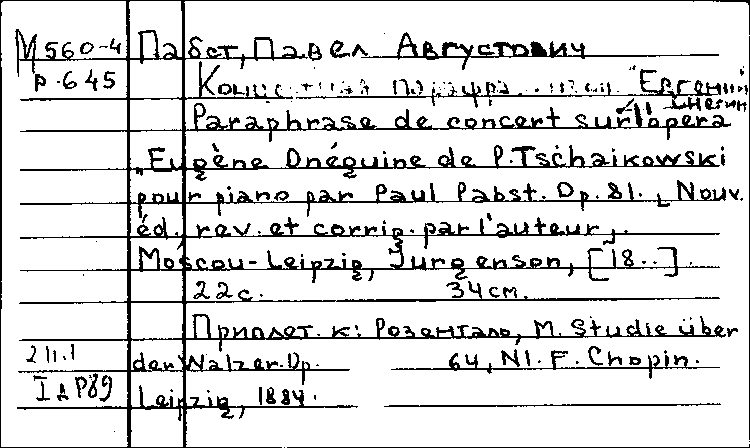 М 560-4 Пабст, Павел Августович
р. 645 Концертная парафра "Евгений Онегин
Paraphrase de concert sur l'opera
„Eugène Onéguine de P. Tschaikowski
pour piano par Paul Pabst. Op. 81. Nouv.
éd. rev. et corrig. par l'auteur.
Moscou-Leipzig, Jurgenson, [18..].
22 с. 34 см.
Приплет. к: Розенталь, M. Studie über
2 II.1 den Walzer. Op. 64, N1. F. Chopin.
I д Р89 Leipzig, 1884.